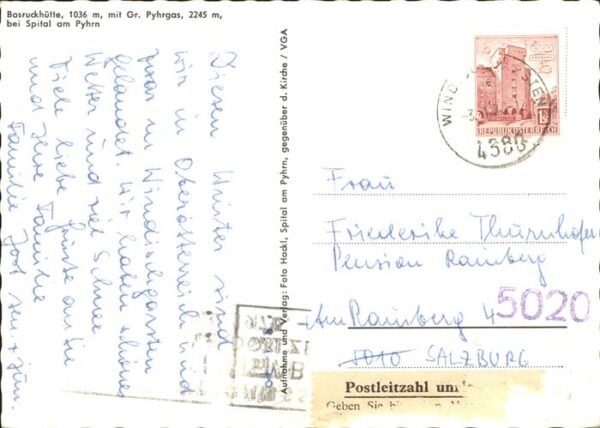 Bosruckhütte, 1036 m, mit Gr. Pyhrgas, 2245 m,
bei Spital am Pyhrn
Diesen Winter sind
wir in Oberösterreich und
zwar in Windischgarsten
gelandet. Wir haben schönes
Wetter und viel Schnee
Viele liebe Grüße an Sie
und Ihre Familie
Familie
Aufnahme und Verlag: Foto Hackl, Spital am Pyhrn, gegenüber d. Kirche / VGA
REPUBLIK ÖSTERREICH
4580
Frau
Friederike Thurnhofer
Pension Rainberg
Am Rainberg 4
5020
5010 SALZBURG
Postleitzahl
Geben Sie